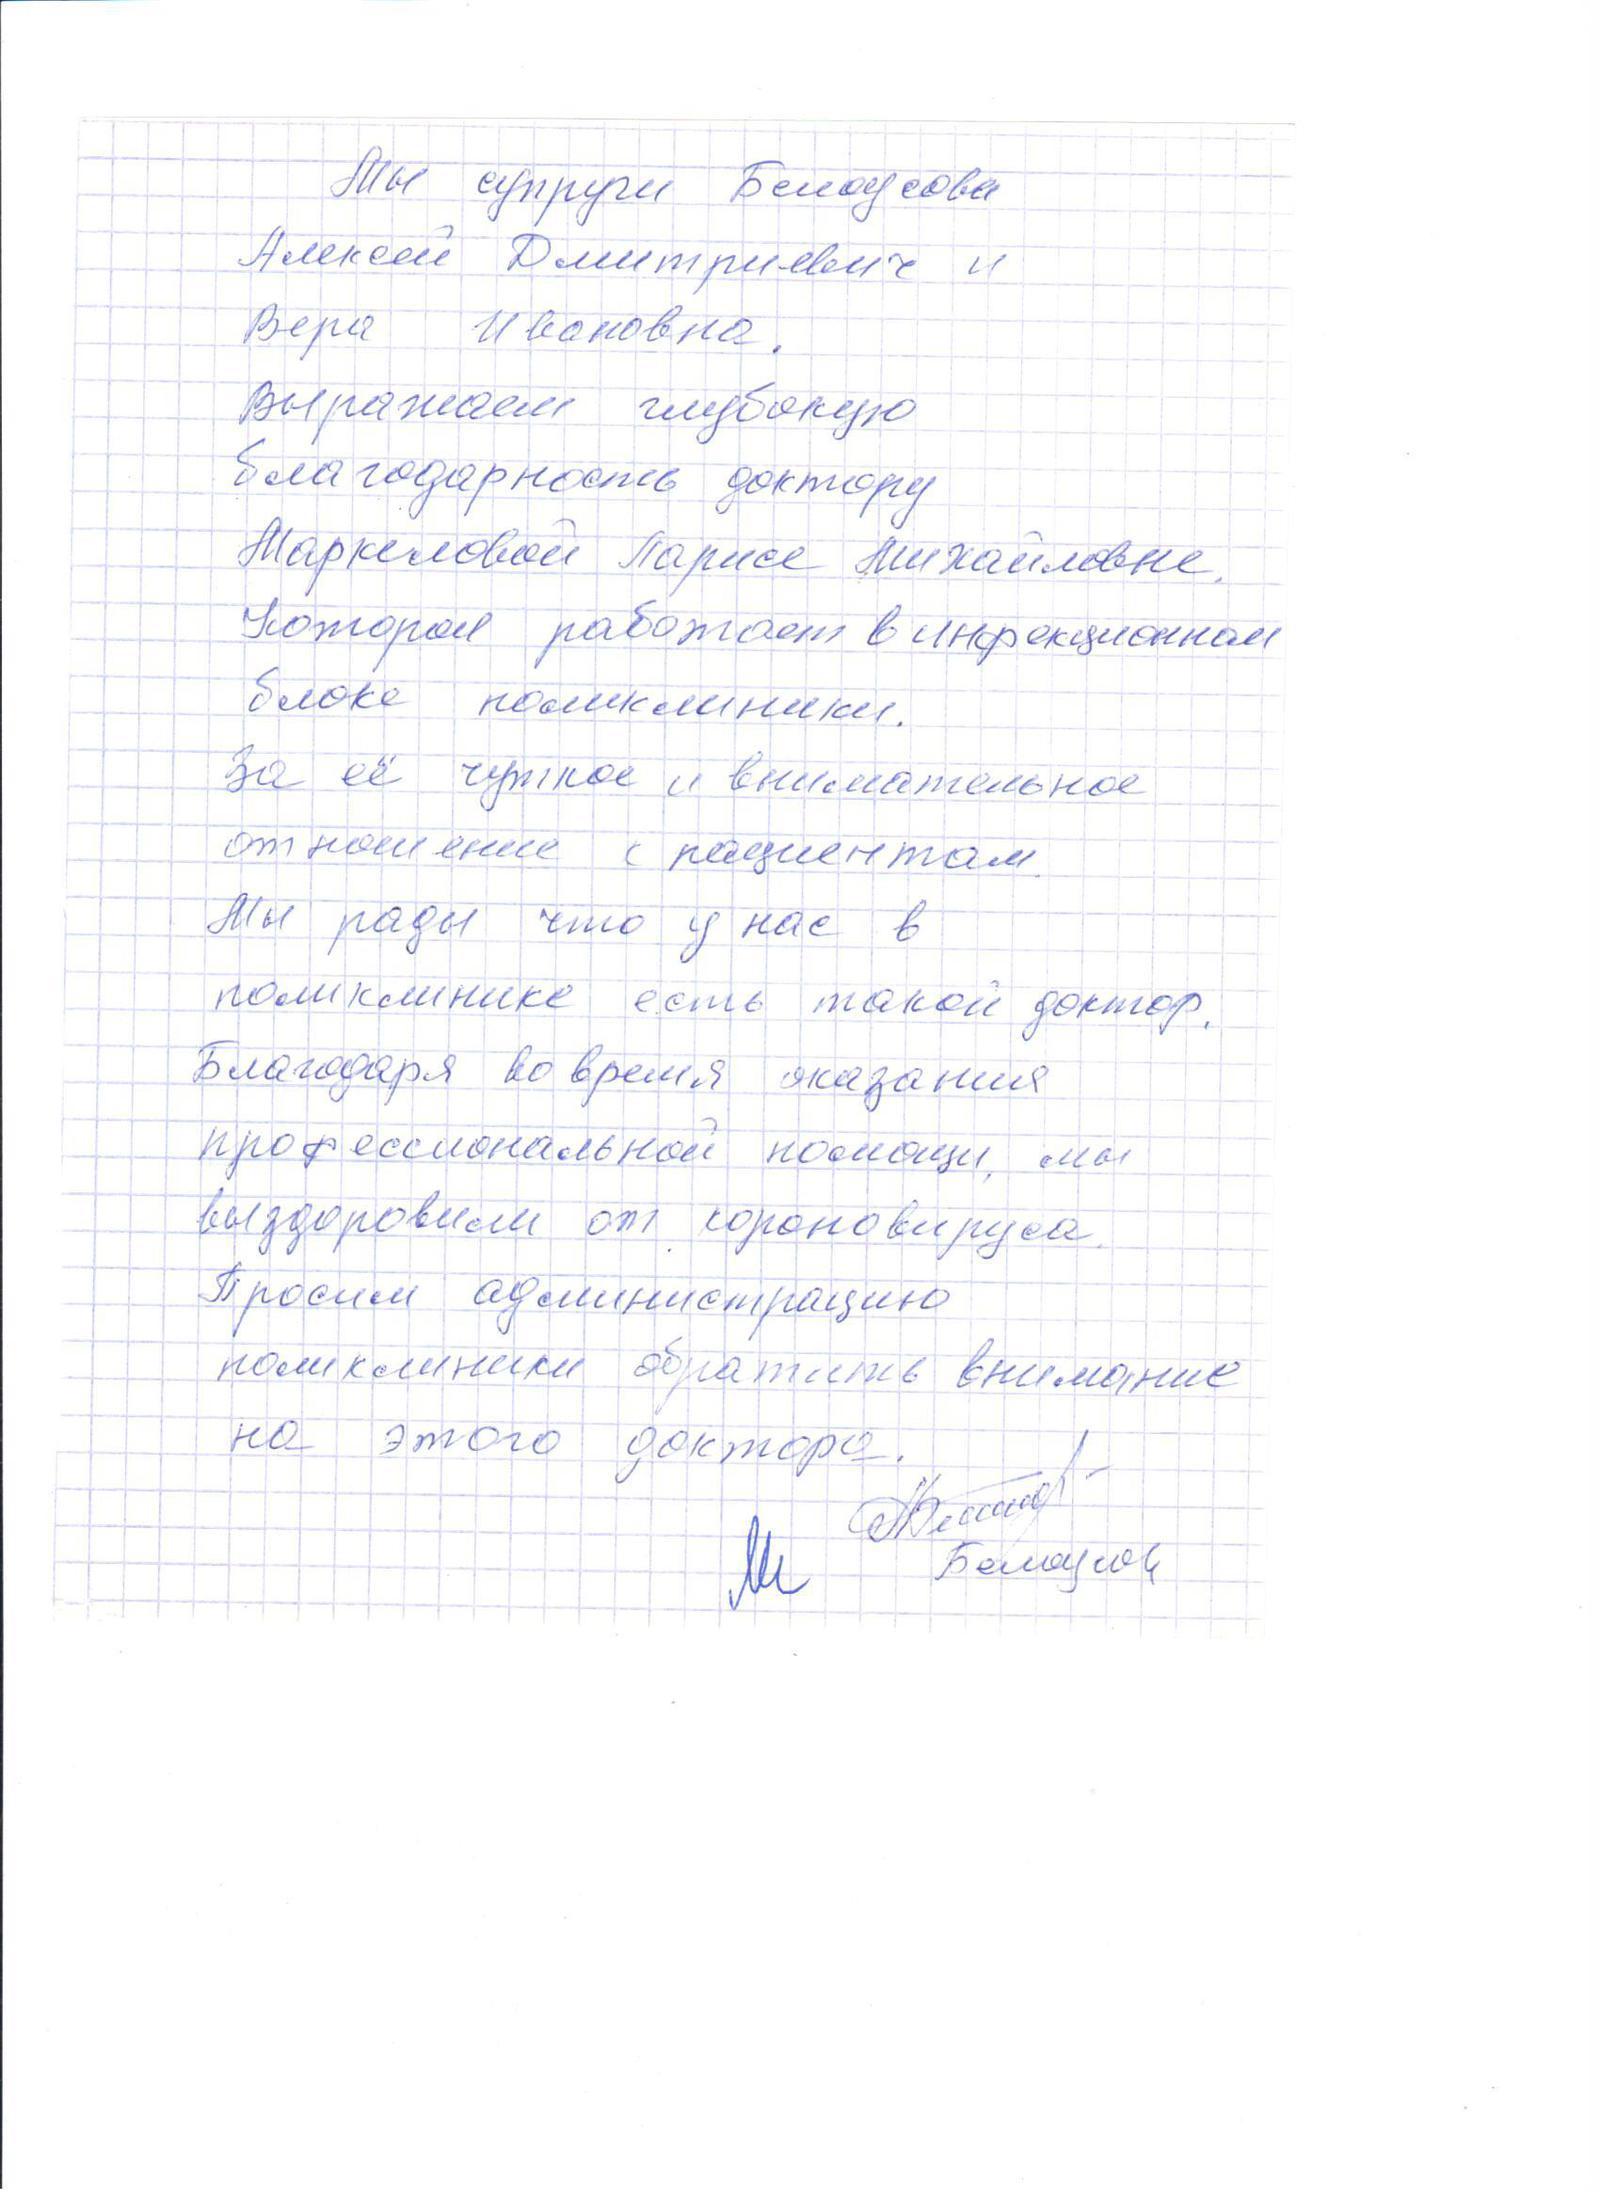 Мы супруги Белоусова
Алексей Дмитриевич и
Вера Ивановна.
Выражаем глубокую
благодарность доктору
Маркеловой Ларисе Михайловне.
Которая работает в инфекционном
блоке поликлиники.
За её чуткое и внимательное
отношение к пациентам.
Мы рады что у нас в
поликлинике есть такой доктор.
Благодаря во время оказания
профессиональной помощи, мы
выздоровили от короновируса.
Просим администрацию
поликлиники обратить внимание
на этого доктора.